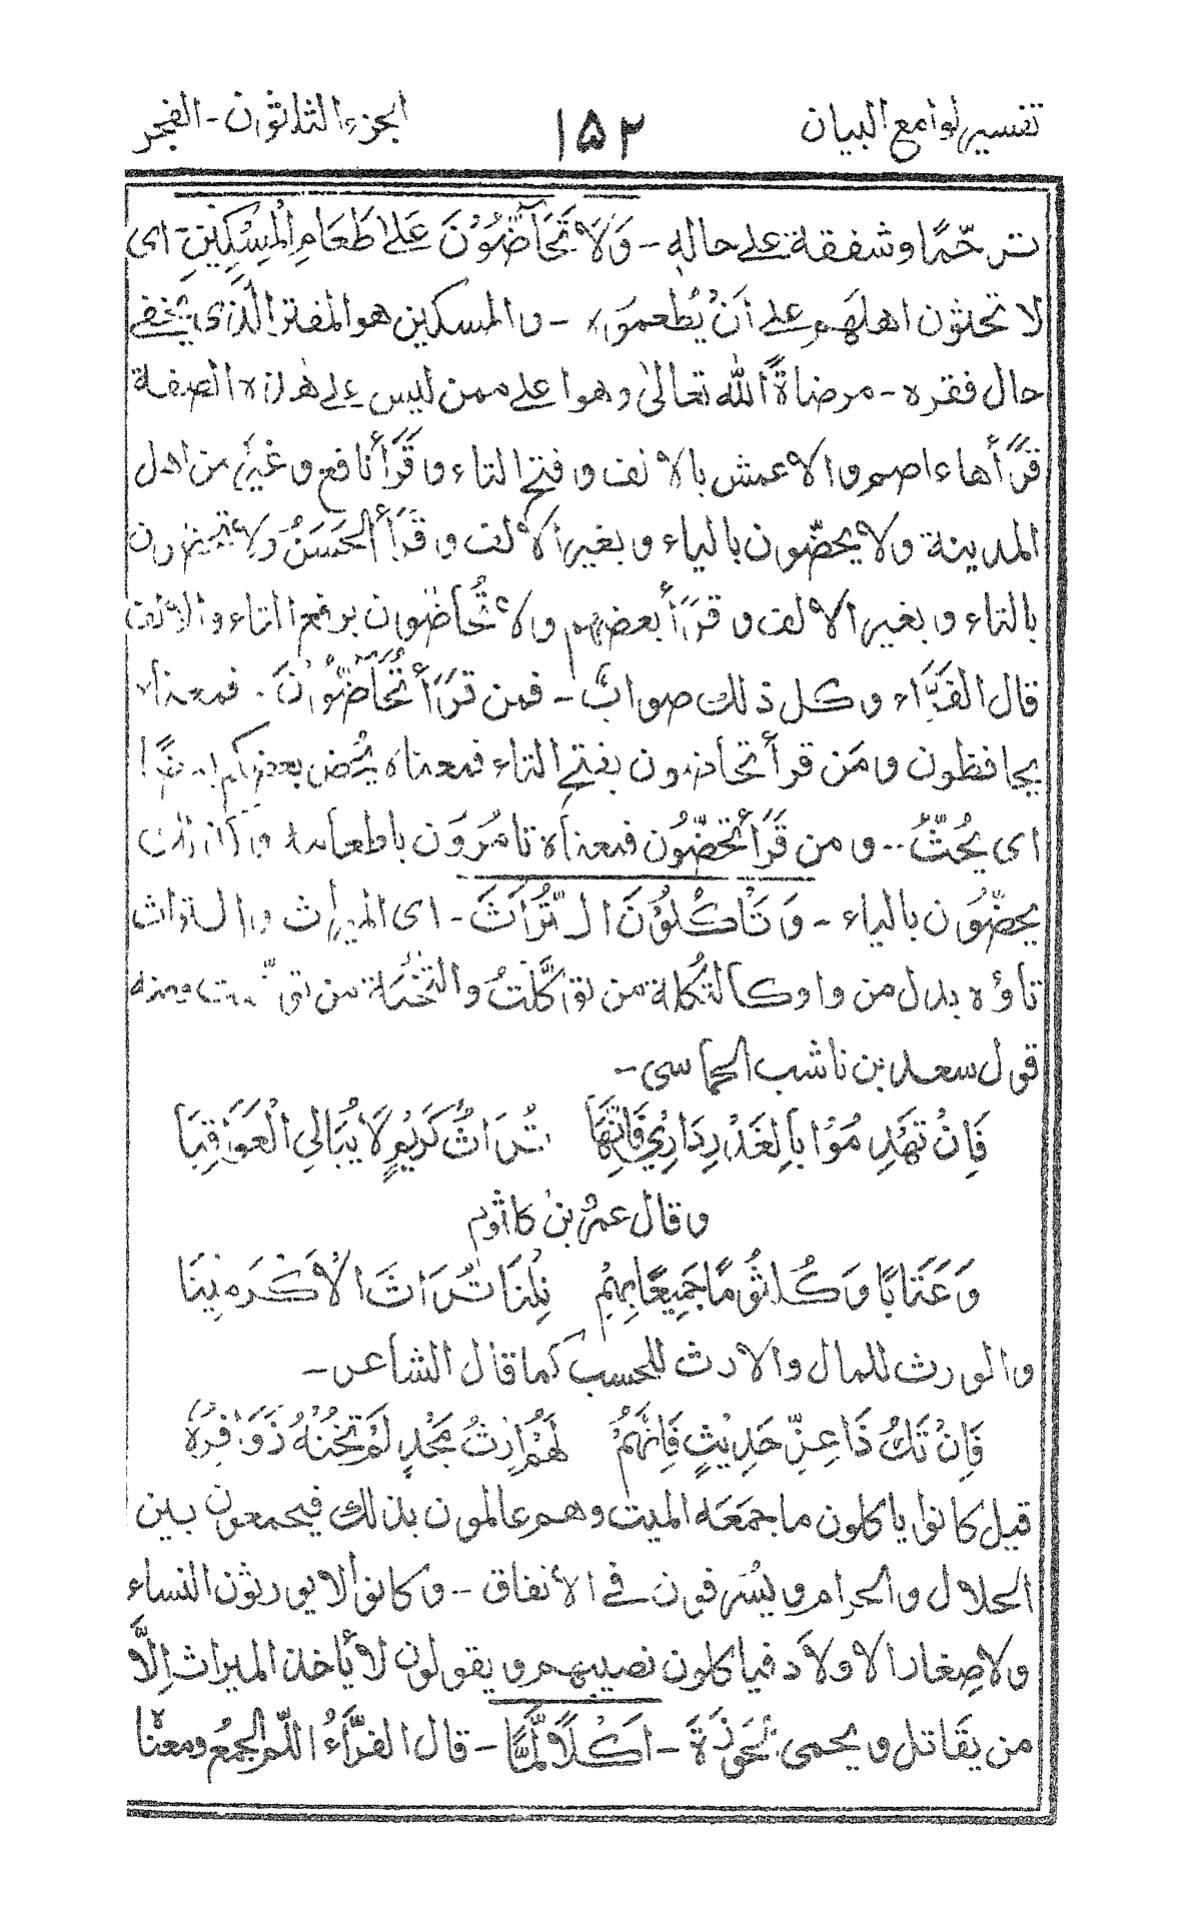 تفسير لوامع البيان ١٥٢ الجزء الثلاثون - الفجر
ترحّمًا و شفقة على حاله - وَلَا تَحَاضُّوْنَ عَلىٰ طَعَامِ الْمِسْكِيْنِ - اى
لا تحثون اهلهم على أنْ يُطعموه - و المسكين هو المفتر الَّذى يخفى
حال فقره - مرضاةً الله تعالىٰ و هو اعلى ممن ليس على هٰذه الصفة
قَرَأها عاصم و الاعمش بالالف و فتح التاء و قَرَأ نافع و غيره من اهل
المدينة ولا يحضّون بالياء و بغير الالف و قَرَأ الحَسَنُ ولا
بالتاء و بغير الالف و قَرَأ بعضهم ولا تُحاضون برفع التاء و الالف
قال الفَرَّاء و كل ذلك صوابٌ - فمن قَرَأ تُحَاضُّوْنَ - فمعناه
يحافظون و مَن قرأ تحاضون بفتح التاء فمعناه يحُض بعضكم بعضًا
اى يحُثّ - و من قَرَأ تحَضُّون فمعناه تامُرَون باطعامه و
يحضّون بالياء - وَ تَاْكُلُوْنَ التُّرَاثَ - اى الميراث و التراث
تاؤه بدل من واو كالتُكلة من توكَّلتُ و التُّخَمَة من و منه
قول سعد بن ناشب الحماسى -
فَاِنْ تَهْدِمُوْا بِالغَدْرِ دَارِيْ فَاِنَّهَا تُرَاثُ كَرِيْمٍ لَا يُبَالِي الْعَوَاقِبَا
و قال عمرو بن كلثوم
وَ عَتَّابًا وَ كُلثُومًا جَمِيْعًا بِهِمْ نِلْنَا تُرَاثَ الْاَكْرَمِيْنَا
و الورث للمال و الارث للحسب كما قال الشاعر -
فَاِنْ تَكُ ذَا عِزٍّ حَدِيْثٍ فَاِنَّهُمْ لَهُمْ اِرْثُ مَجْدٍ لَمْ تَخُنْهُ زَوَافِرُهُ
قيل كانوا ياكلون ما جمَعَه الميت و هم عالمون بذلك فيجمعون بين
الحلال و الحرام و يسْرفون فى الأنفاق - و كانوا لا يورثون النساء
ولا صِغار الاولَاد فياكلون نصيبهم و يقولون لا يأخذ الميراث اِلَّا
من يقَاتل و يحمى حَوْزَةَ - اَكْلًا لَّمًّا - قال الفرَّاءُ اللّم الجمعُ و معناه